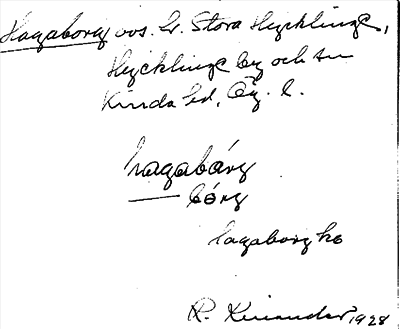 Hagaborg avs. Lr. Stora Hycklinge,
Hycklinge by och sn
Kinda hd, Ög. l.
hagabårg
bórg
hagaborg
R. Kinander 1928